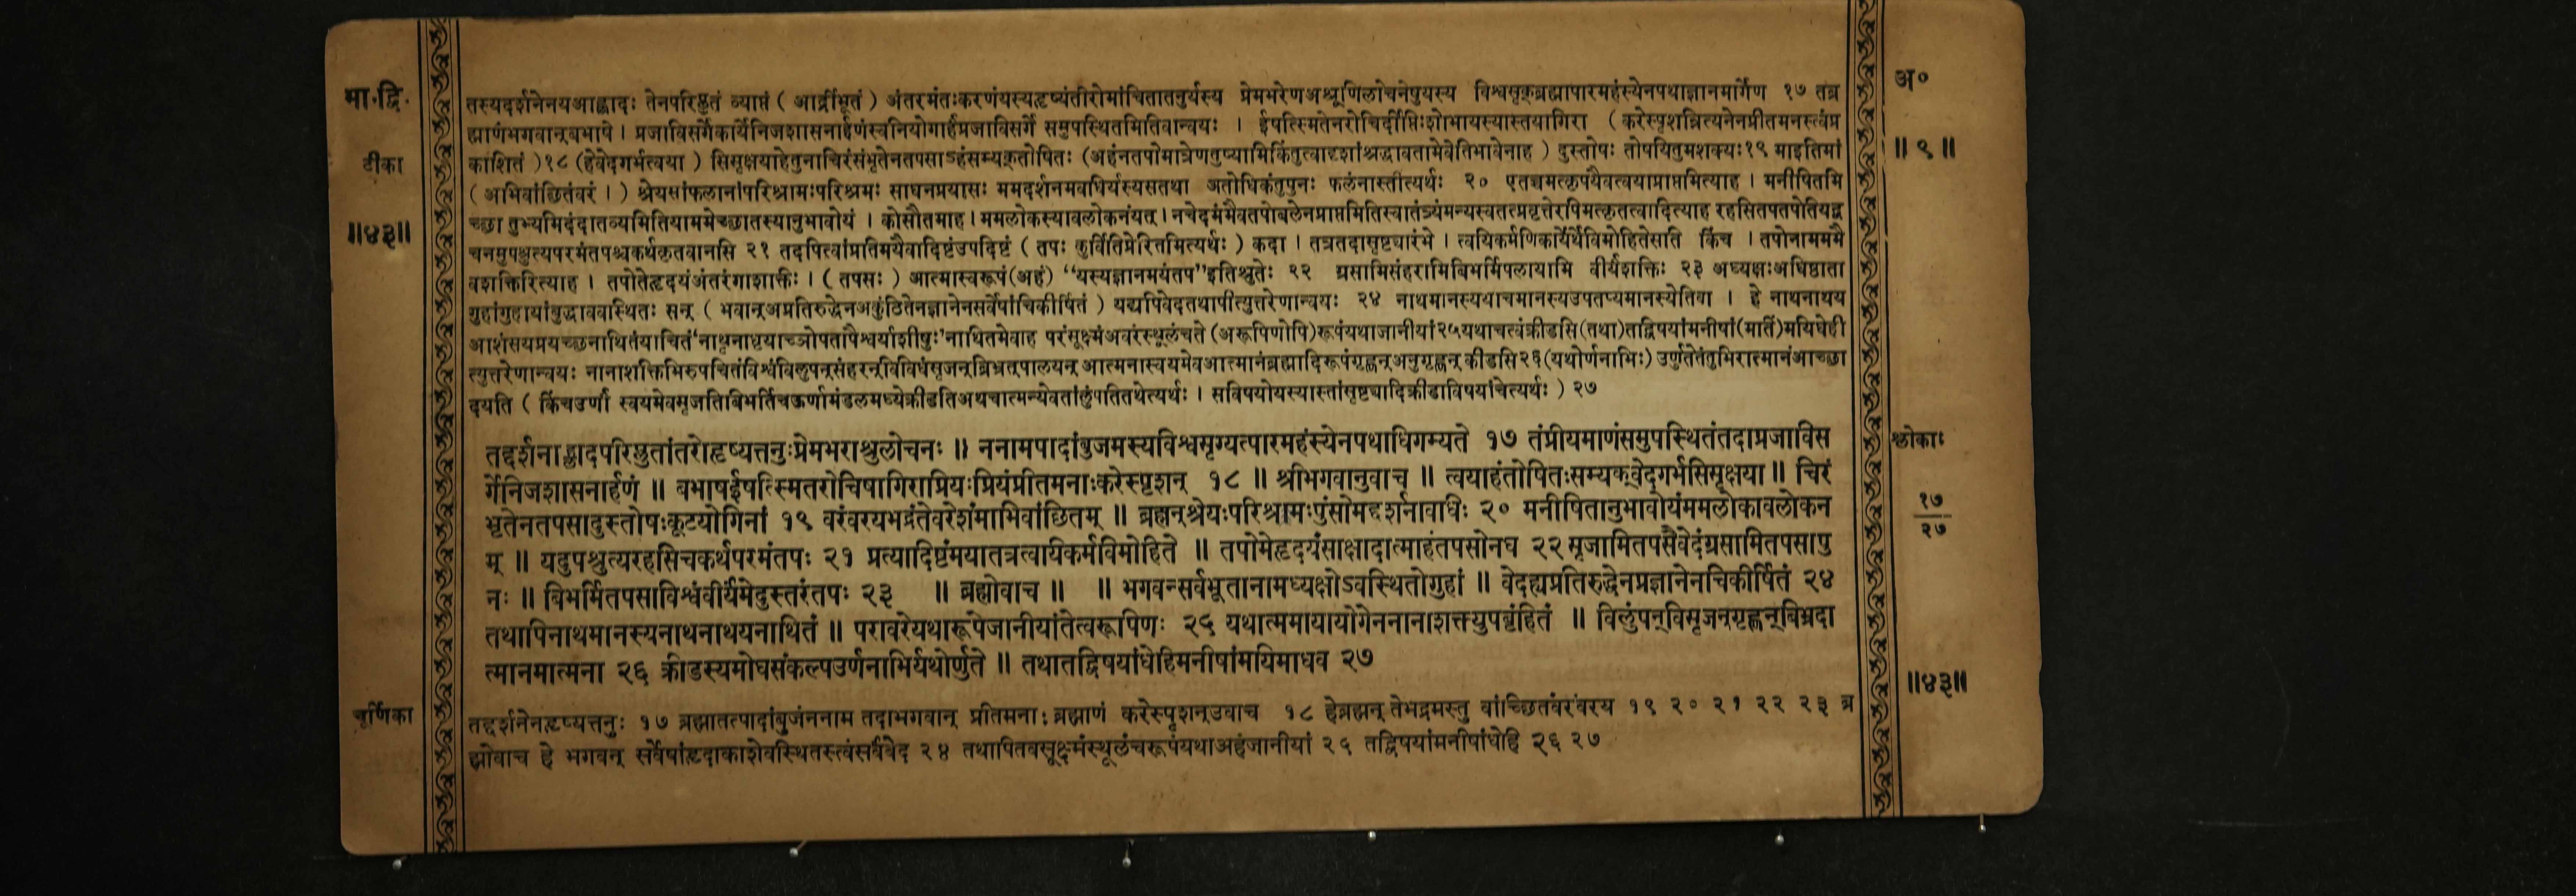 भा.द्वि.
तस्यदर्शनेनयआह्लादः तेनपरिप्लुतं व्याप्तं ( आर्द्रीभूतं ) अंतरमंतःकरणंयस्यहृष्यंतीरोमांचितातनुर्यस्य प्रेमभरेणअश्रूणिलोचनेषुयस्य विश्वसृक्ब्रह्मापारमहंस्येनपथाज्ञानमार्गेण १७ तंब्र
अ०
ह्माणंभगवान्बभाषे । प्रजाविसर्गेकार्येनिजशासनार्हणंस्वनियोगार्हंप्रजाविसर्गे समुपस्थितमितिवान्वयः । ईषत्स्मितेनरोचिर्दीप्तिःशोभायस्यास्तयागिरा ( करेस्पृशन्नित्यनेनप्रीतमनस्त्वंप्र
टीका
काशितं )१८ (हेवेदगर्भत्वया ) सिसृक्षयाहेतुनाचिरंसंभृतेनतपसाऽहंसम्यक्तोषितः (अहंनतपोमात्रेणतुष्यामिकिंतुत्वादृशांश्रद्धावतामेवेतिभावेनाह ) दुस्तोषः तोषयितुमशक्यः१९ माइतिमां
॥ ९ ॥
( अभिवांछितंवरं । ) श्रेयसांफलानांपरिश्रामःपरिश्रमः साधनप्रयासः ममदर्शनमवधिर्यस्यसतथा अतोधिकंतुपुनः फलंनास्तीत्यर्थः २० एतच्चमत्कृपयैवत्वयाप्राप्तमित्याह । मनीषितमि
॥४३॥
च्छा तुभ्यमिदंदातव्यमितियाममेच्छातस्यानुभावोयं । कोसौतमाह । ममलोकस्यावलोकनंयत् । नचेदंममैवतपोबलेनप्राप्तमितिस्वातंत्र्यंमन्यस्वतत्प्रवृत्तेरपिमत्कृतत्वादित्याह रहसितपतपेतियद्व
चनमुपश्रुत्यपरमंतपश्चकर्थकृतवानसि २१ तदपित्वांप्रतिमयैवादिष्टंउपदिष्टं ( तपः कुर्वितिप्रेरितमित्यर्थः ) कदा । तत्रतदासृष्ट्यारंभे । त्वयिकर्मणिकार्येर्थेविमोहितेसति किंच । तपोनामममै
वशक्तिरित्याह । तपोतेहृदयंअंतरंगाशक्तिः । ( तपसः ) आत्मास्वरूपं(अहं) “यस्यज्ञानमयंतप”इतिश्रुतेः २२ ग्रसामिसंहरामिबिभर्मिपलायामि वीर्यंशक्तिः २३ अध्यक्षःअधिष्ठाता
गुहांगुहायांबुद्धाववस्थितः सन् ( भवान्अप्रतिरुद्धेनअकुंठितेनज्ञानेनसर्वेषांचिकीर्षितं ) यद्यपिवेदतथापीत्युत्तरेणान्वयः २४ नाथमानस्ययाचमानस्यउपतप्यमानस्येतिवा । हे नाथनाथय
आशंसयप्रयच्छनाथितंयाचितं‘नाधृनाथृयाच्ञोपतापैश्वर्याशीषुः’नाथितमेवाह परंसूक्ष्मंअवरंस्थूलंचते (अरूपिणोपि)रूपंयथाजानीयां२५यथाचत्वंक्रीडसि(तथा)तद्विषयांमनीषां(मतिं)मयिधेही
त्युत्तरेणान्वयः नानाशक्तिभिरुपचितंविश्वंविलुंपन्संहरन्विविधंसृजन्बिभ्रत्पालयन् आत्मनास्वयमेवआत्मानंब्रह्मादिरूपंगृह्णन्अनुगृह्णन् क्रीडसि२६(यथोर्णनाभिः) उर्णुतेतंतुभिरात्मानंआच्छा
दयति ( किंचउर्णां स्वयमेवसृजतिबिभर्तिचऊर्णामंडलमध्येक्रीडतिअथचात्मन्येवतांलुंपतितथेत्यर्थः । सविषयोयस्यास्तांसृष्ट्यादिक्रीडाविषयांचेत्यर्थः ) २७
तद्दर्शनाह्लादपरिप्लुतांतरोहृष्यत्तनुःप्रेमभराश्रुलोचनः ॥ ननामपादांबुजमस्यविश्वसृग्यत्पारमहंस्येनपथाधिगम्यते १७ तंप्रीयमाणंसमुपस्थितंतदाप्रजाविस
श्लोकाः
र्गेनिजशासनार्हणं ॥ बभाषईषत्स्मितरोचिषागिराप्रियःप्रियंप्रीतमनाःकरेस्पृशन् १८ ॥ श्रीभगवानुवाच ॥ त्वयाहंतोषितःसम्यक्वेदगर्भसिसृक्षया ॥ चिरं
१७
भृतेनतपसादुस्तोषःकूटयोगिनां १९ वरंवरयभद्रंतेवरेशंमाभिवांछितम् ॥ ब्रह्मन्श्रेयःपरिश्रामःपुंसोमद्दर्शनावधिः २० मनीषितानुभावोयंममलोकावलोकन
२७
म् ॥ यदुपश्रुत्यरहसिचकर्थपरमंतपः २१ प्रत्यादिष्टंमयातत्रत्वयिकर्मविमोहिते ॥ तपोमेहृदयंसाक्षादात्माहंतपसोनघ २२ सृजामितपसैवेदंग्रसामितपसापु
नः ॥ बिभर्मितपसाविश्वंवीर्यंमेदुस्तरंतपः २३ ॥ ब्रह्मोवाच ॥ ॥ भगवन्सर्वभूतानामध्यक्षोऽवस्थितोगुहां ॥ वेदह्यप्रतिरुद्धेनप्रज्ञानेनचिकीर्षितं २४
तथापिनाथमानस्यनाथनाथयनाथितं ॥ परावरेयथारूपेजानीयांतेत्वरूपिणः २५ यथात्ममायायोगेननानाशक्त्युपबृंहितं ॥ विलुंपन्विसृजन्गृह्णन्बिभ्रदा
त्मानमात्मना २६ क्रीडस्यमोघसंकल्पउर्णनाभिर्यथोर्णुते ॥ तथातद्विषयांधेहिमनीषांमयिमाधव २७
॥४३॥
चूर्णिका
तद्दर्शनेनहृष्यत्तनुः १७ ब्रह्मातत्पादांबुजंननाम तदाभगवान् प्रीतमनाः ब्रह्माणं करेस्पृशन्उवाच १८ हेब्रह्मन् तेभद्रमस्तु वांच्छितंवरंवरय १९ २० २१ २२ २३ ब्र
ह्मोवाच हे भगवन् सर्वेषांहृदाकाशेवस्थितस्त्वंसर्वंवेद २४ तथापितवसूक्ष्मंस्थूलंचरूपंयथाअहंजानीयां २५ तद्विषयांमनीषांधेहि २६ २७